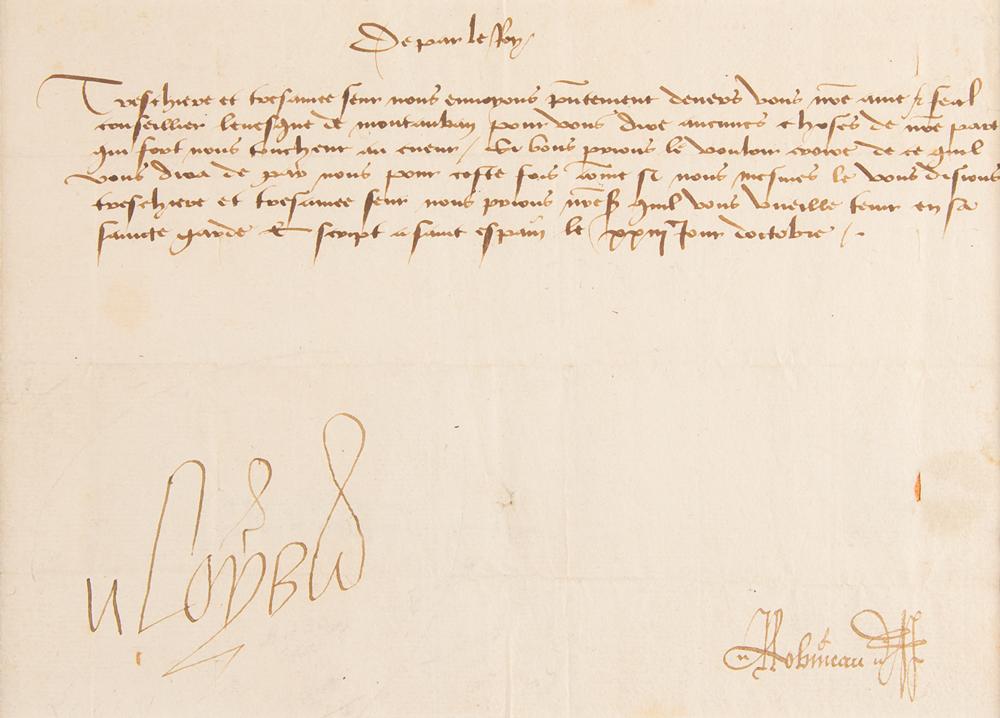 De par le Roy
Treschiere et tresamee seur nous envoyons p̃ntement devers vous nr̃e ame & feal
conseillier levesque de montauban pour vous dire aucunes choses de nr̃e part
qui fort nous touchent au cueur / Si vous prions le vouloir croire de ce quil
vous dira de par nous pour ceste fois cõme si nous mesmes le vous disions
treschiere et tresamee seur nous prions nr̃e sr quil vous vueille tenir en sa
saincte garde Escript a saint le xxiij Jour doctobre /.
Loys
Robineau